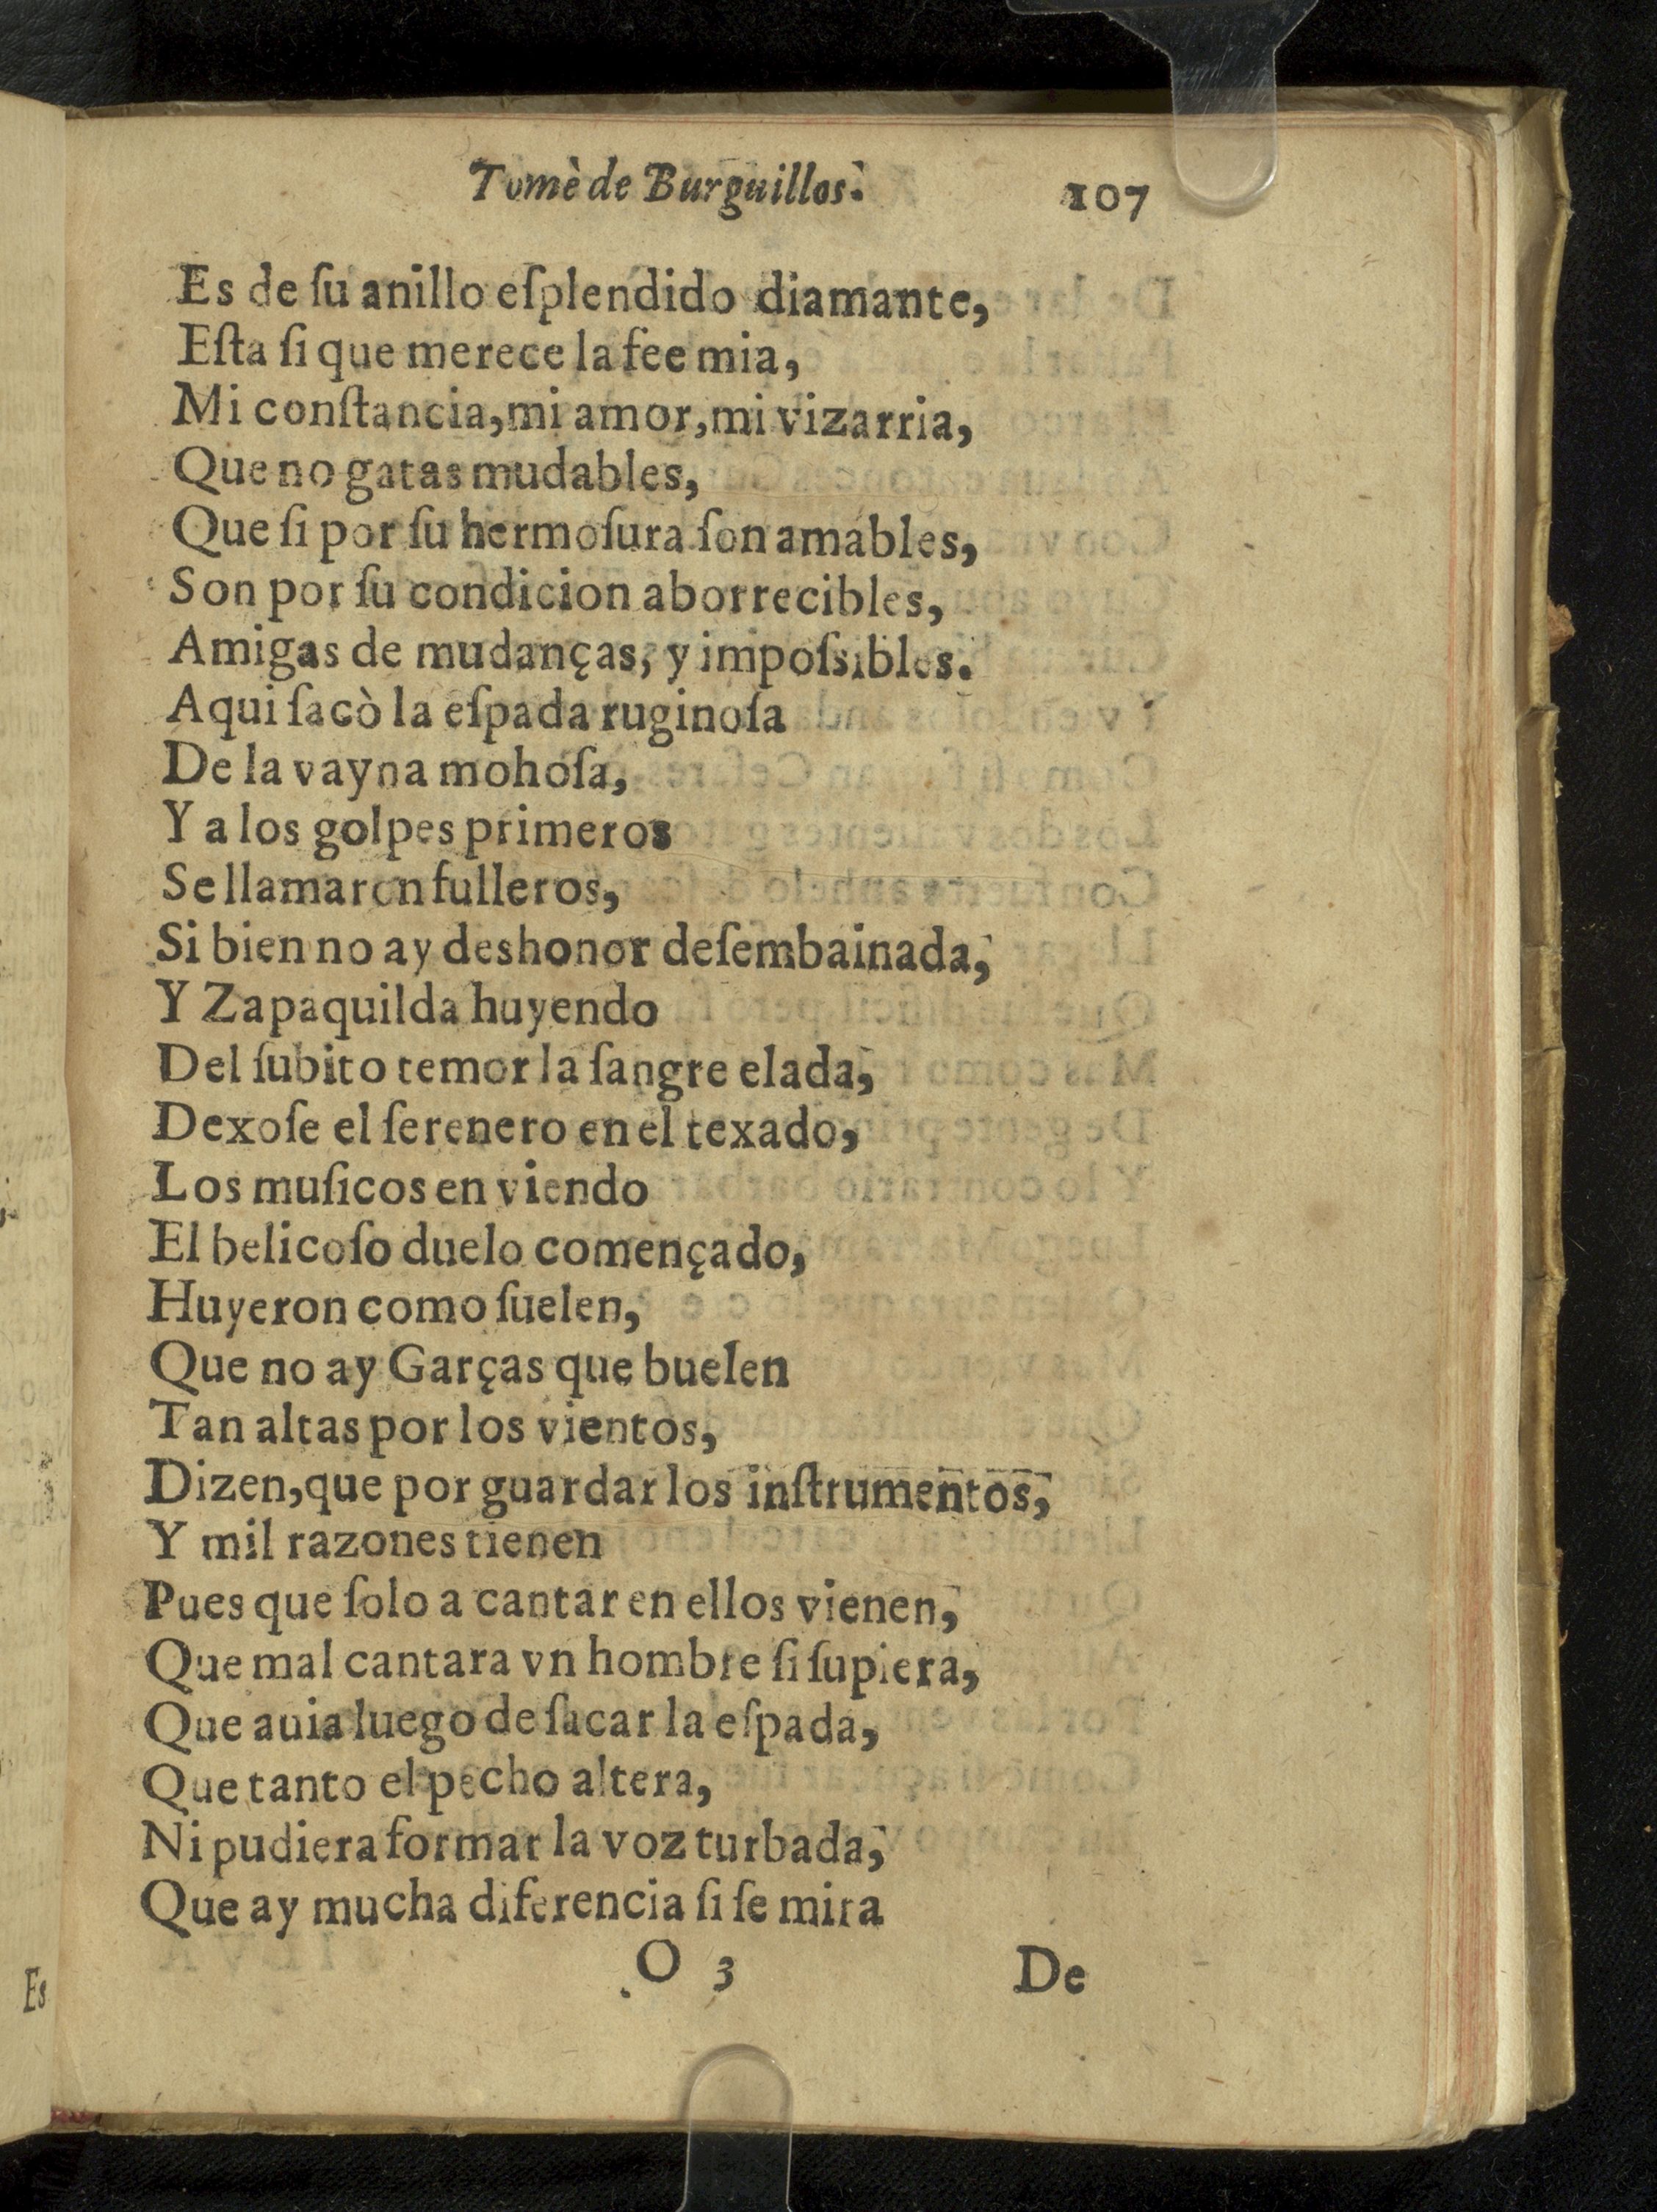 Tomè de Burguillos. 107
Es de ſu anillo eſplendido diamante,
Eſta ſi que merece la fee mia,
Mi conſtancia, mi amor, mi vizarria,
Que no gatas mudables,
Que ſi por ſu hermoſura ſon amables,
Son por ſu condicion aborrecibles,
Amigas de mudanças, y impoſsibles.
Aqui ſacò la eſpada ruginoſa
De la vayna mohoſa,
Y a los golpes primeros
Se llamaron fulleros,
Si bien no ay deshonor deſembainada,
Y Zapaquilda huyendo
Del ſubito temor la ſangre elada,
Dexoſe el ſerenero en el texado,
Los muſicos en viendo
El belicoſo duelo començado,
Huyeron como ſuelen,
Que no ay Garças que buelen
Tan altas por los vientos,
Dizen, que por guardar los inſtrumentos,
Y mil razones tienen
Pues que ſolo a cantar en ellos vienen,
Que mal cantara vn hombre ſi ſupiera,
Que auia luego de ſacar la eſpada,
Que tanto el pecho altera,
Ni pudiera formar la voz turbada,
Que ay mucha diferencia ſi ſe mira
O 3 De
Es